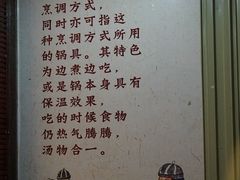 烹调方式，
同时亦可指这
种烹调方式所用
的锅具。其特色
为边煮边吃，
或是锅本身具有
保温效果，
吃的时候食物
仍热气腾腾，
汤物合一。